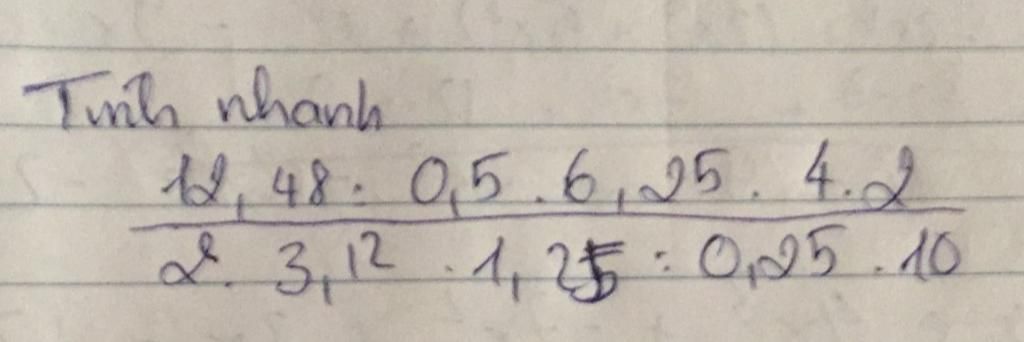 Tính nhanh
12,48 : 0,5 . 6,25 . 4 . 2
2 . 3,12 . 1,25 : 0,25 . 10